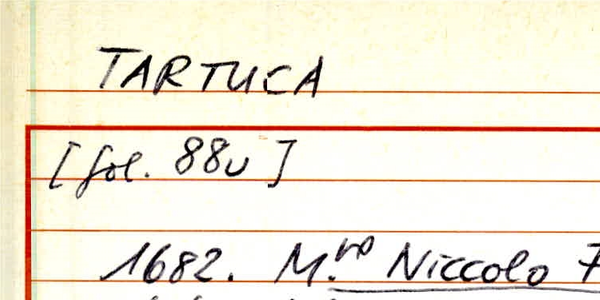 TARTUCA
[fol. 88v]
1682. M.ro Niccolo